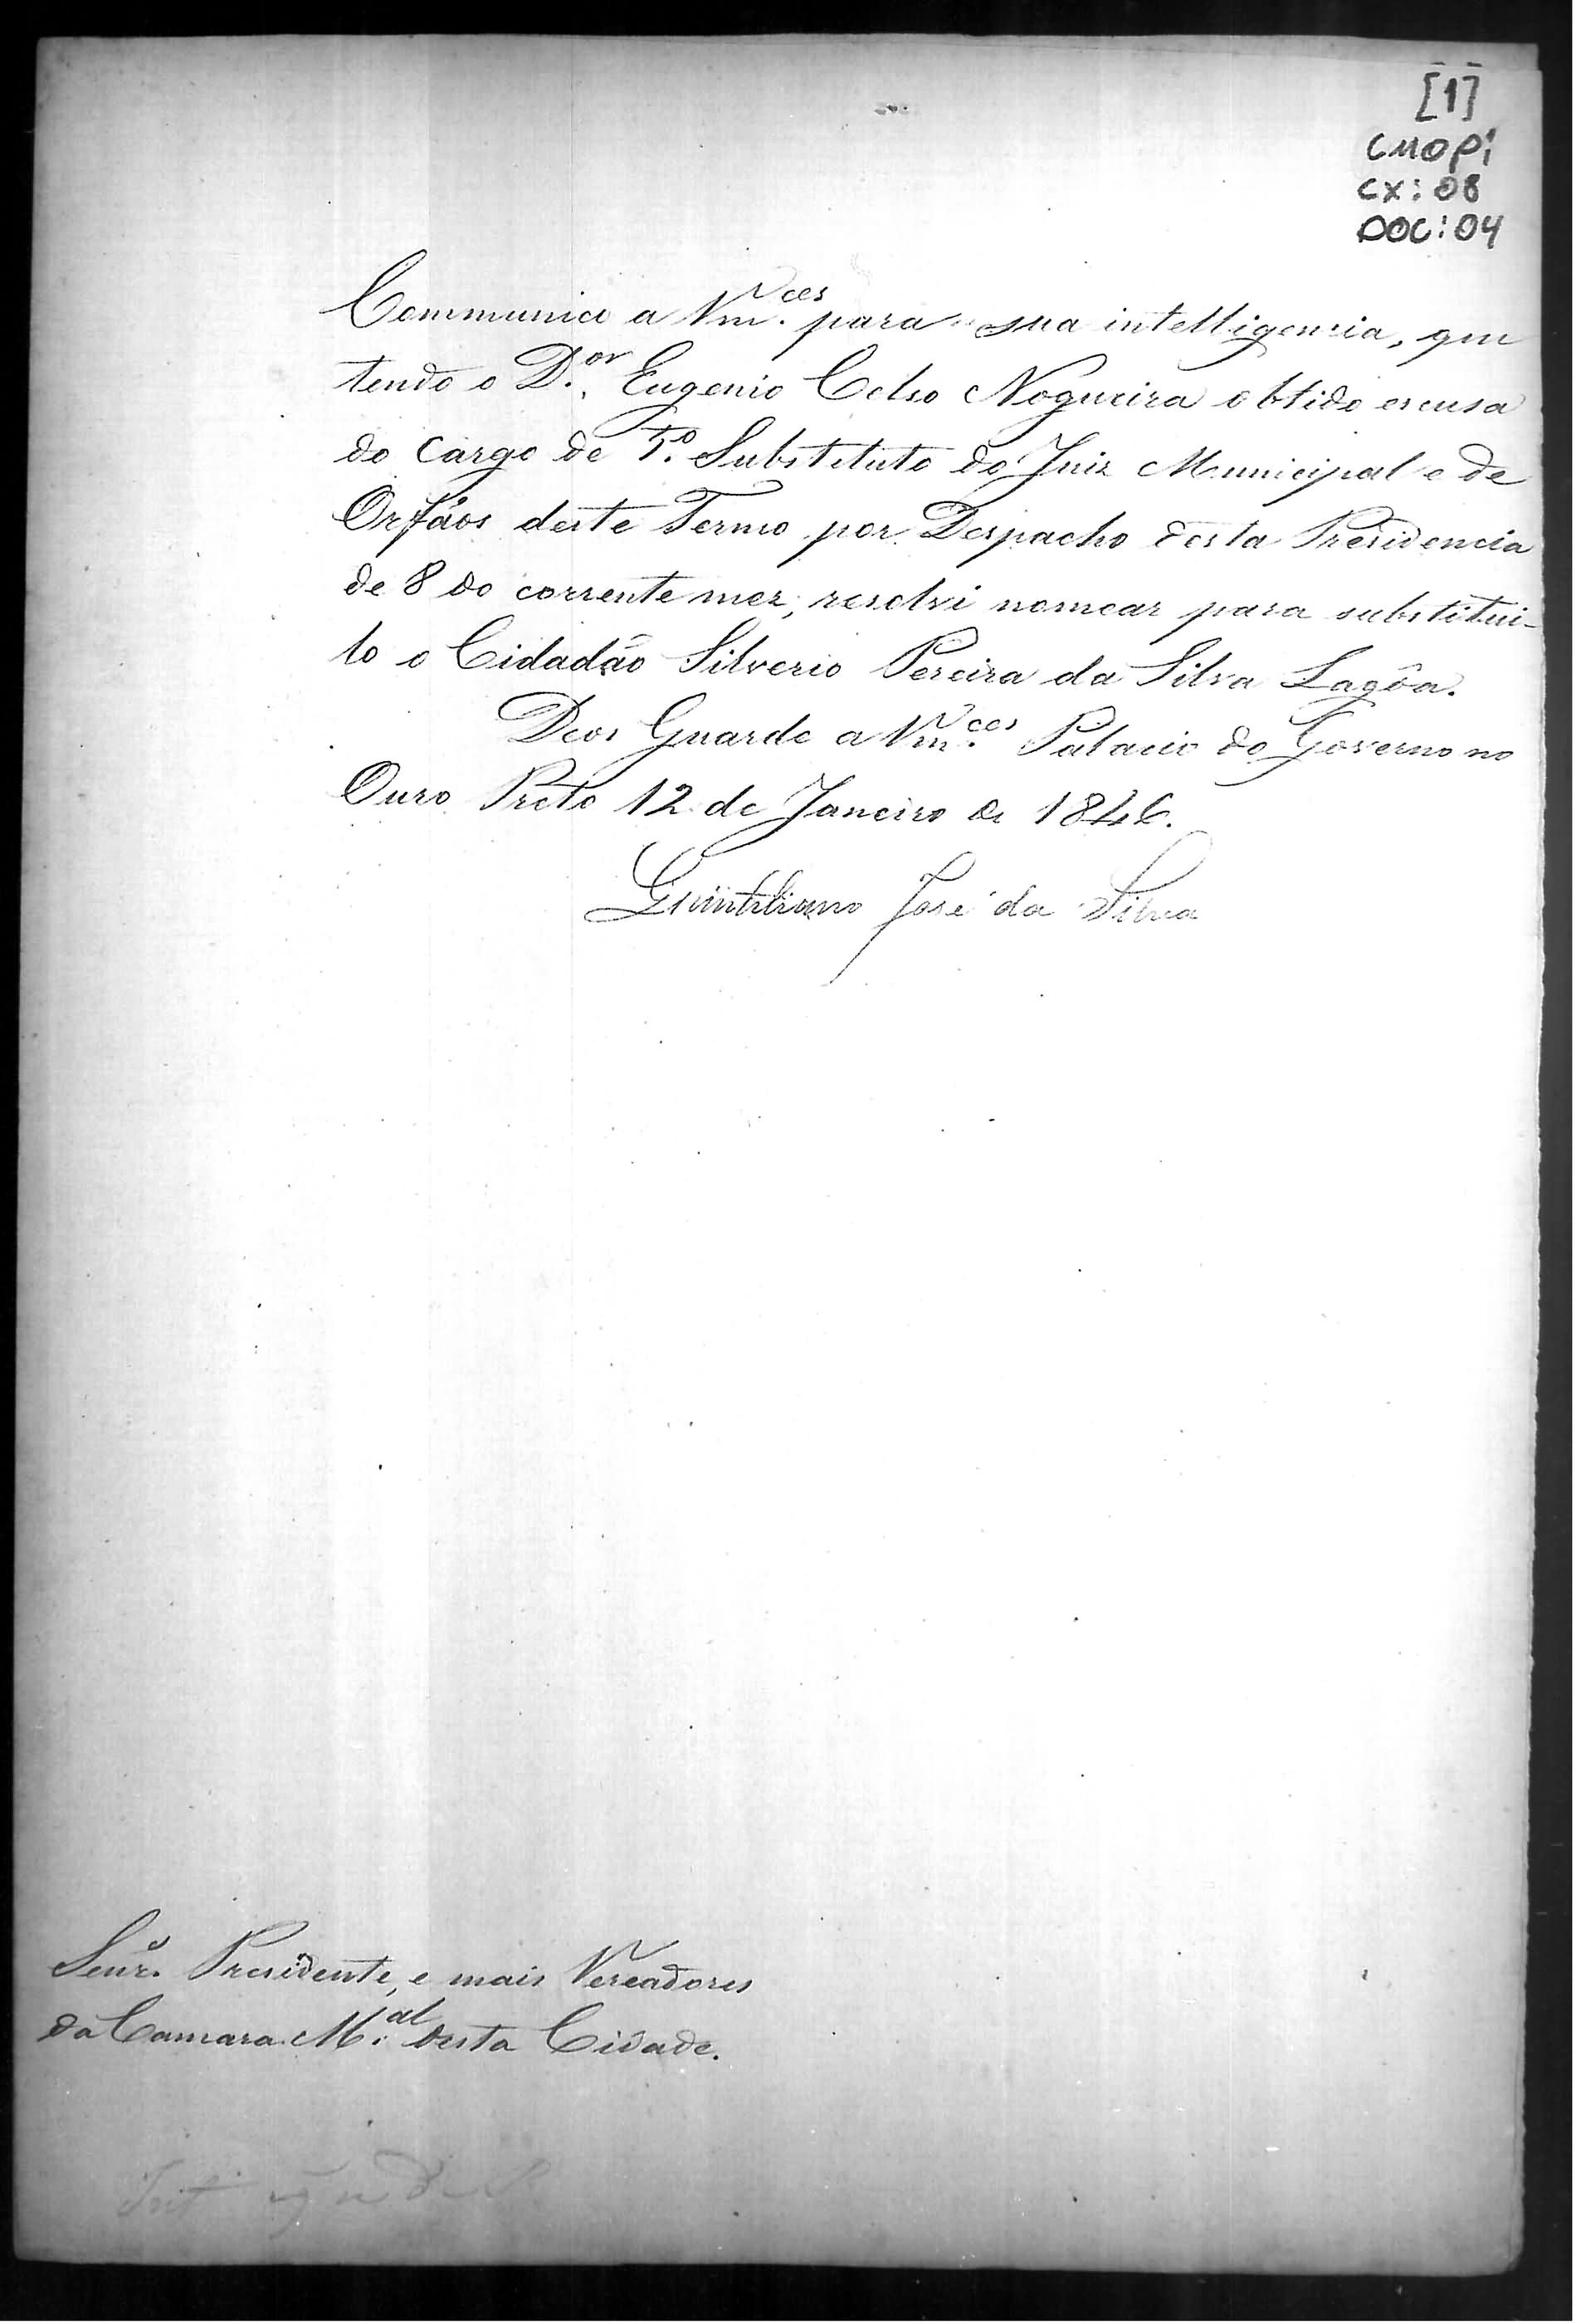 [1]
CMOPi
CX: 08
DOC: 04
Communico a Vm.ces para sua intelligencia, que
tendo o D.or Eugenio Celso Nogueira obtido escusa
do Cargo de 1.º Substituto do Juiz Municipal e de
Orfãos deste Termo por Despacho desta Presidencia
de 8 do corrente mez, resolvi nomear para substitui-
lo o Cidadão Silverio Pereira da Silva Lagôa.
Deos Guarde a Vm.ces Palacio do Governo no
Ouro Preto 12 de Janeiro de 1846.
Quintiliano José da Silva
Senr.s Presidente, e mais Vereadores
da Camara M.al desta Cidade.